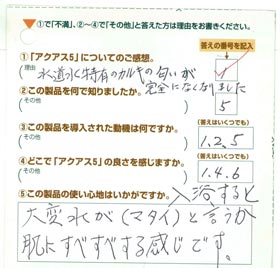 ①で「不満」、②~④で「その他」と答えた方は理由をお書きください。
答えの番号を記入
①「アクアス5」についてのご感想。
(理由 水道水特有のカルキの匂いが完全になくなりました
②この製品を何で知りましたか。
(その他
5
③この製品を導入された動機は何ですか。
(答えはいくつでも)
(その他
1.2.5
④どこで「アクアス5」の良さを感じますか。
(答えはいくつでも)
(その他
1.4.6
⑤この製品の使い心地はいかがですか。入浴すると
大変水が(マタイ)と言うか
肌にすべすべする感じです。